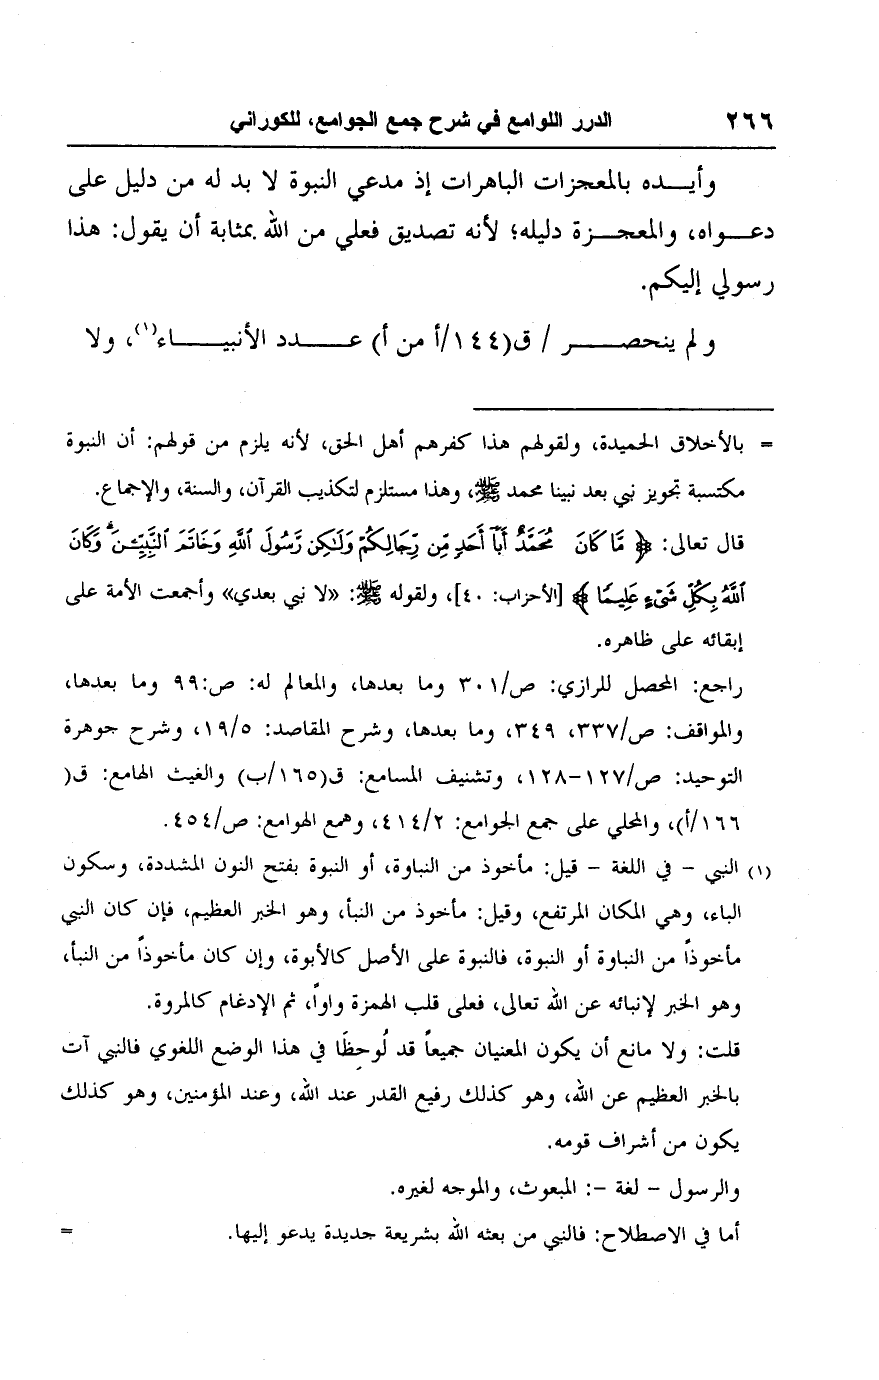 ٢٦٦ الدرر اللوامع في شرح جمع الجوامع، للكوراني
وأيـــده بالمعجزات الباهرات إذ مدعي النبوة لا بد له من دليل على
دعـــواه، والمعجـــزة دليله؛ لأنه تصديق فعلي من الله بمثابة أن يقول: هذا
رسولي إليكم.
و لم ينحصـــر / ق(١٤٤/أ من أ) عـــدد الأنبيـــاء(١)، ولا
= بالأخلاق الحميدة، ولقولهم هذا كفرهم أهل الحق، لأنه يلزم من قولهم: أن النبوة
مكتسبة تجويز نبي بعد نبينا محمد ﷺ، وهذا مستلزم لتكذيب القرآن، والسنة، والإجماع.
قال تعالى: ﴿ مَّا كَانَ مُحَمَّدٌ أَبَآ أَحَدٍ مِّن رِّجَالِكُمْ وَلَٰكِن رَّسُولَ ٱللَّهِ وَخَاتَمَ ٱلنَّبِيِّـۧنَ ۗ وَكَانَ
ٱللَّهُ بِكُلِّ شَىْءٍ عَلِيمًا ﴾ [الأحزاب: ٤٠]، ولقوله ﷺ: «لا نبي بعدي» وأجمعت الأمة على
إبقائه على ظاهره.
راجع: المحصل للرازي: ص/٣٠١ وما بعدها، والمعالم له: ص:٩٩ وما بعدها،
والمواقف: ص/٣٣٧، ٣٤٩، وما بعدها، وشرح المقاصد: ١٩/٥، وشرح جوهرة
التوحيد: ص/١٢٧-١٢٨، وتشنيف المسامع: ق(١٦٥/ب) والغيث الهامع: ق(
١٦٦/أ)، والمحلي على جمع الجوامع: ٤١٤/٢، وهمع الهوامع: ص/٤٥٤.
(١) النبي - في اللغة - قيل: مأخوذ من النباوة، أو النبوة بفتح النون المشددة، وسكون
الباء، وهي المكان المرتفع، وقيل: مأخوذ من النبأ، وهو الخبر العظيم، فإن كان النبي
مأخوذاً من النباوة أو النبوة، فالنبوة على الأصل كالأبوة، وإن كان مأخوذاً من النبأ،
وهو الخبر لإنبائه عن الله تعالى، فعلى قلب الهمزة واواً، ثم الإدغام كالمروة.
قلت: ولا مانع أن يكون المعنيان جميعاً قد لُوحِظَا في هذا الوضع اللغوي فالنبي آت
بالخبر العظيم عن الله، وهو كذلك رفيع القدر عند الله، وعند المؤمنين، وهو كذلك
يكون من أشراف قومه.
والرسول - لغة -: المبعوث، والموجه لغيره.
أما في الاصطلاح: فالنبي من بعثه الله بشريعة جديدة يدعو إليها. =